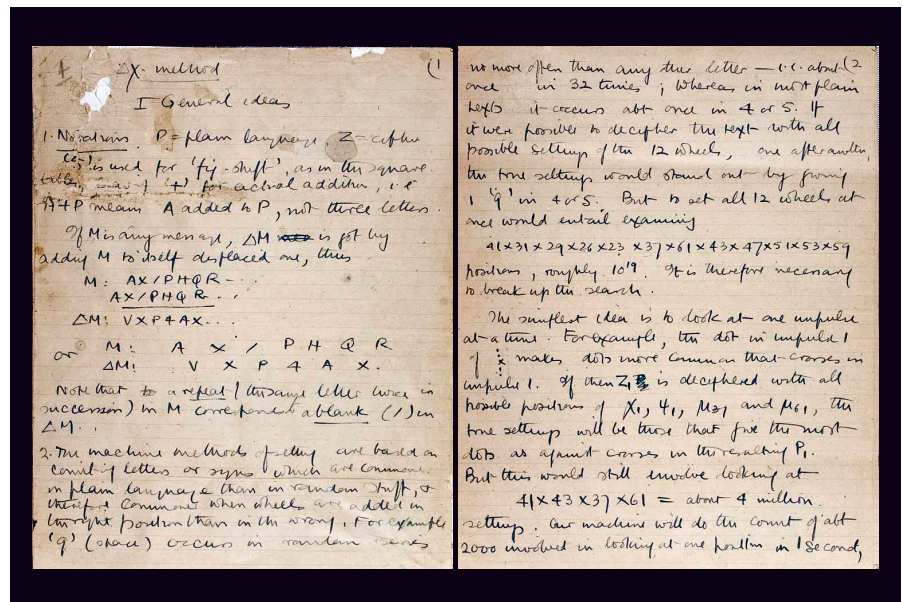 ΔX-method (1
I General ideas
1. Notations. P = plain language. Z = cipher
is used for 'fig-shift', as in the square
table, '+' for actual addition, i.e
A+P means A added to P, not three letters.
If M is any message, ΔM is got by
adding M to itself displaced one, thus
M: AX/PHQR-..
AX/PHQR-..
ΔM: VXP4AX...
or M: A X / P H Q R
ΔM: V X P 4 A X .
Note that a repeat (the same letter twice in
succession) in M corresponds a blank (/) in
ΔM.
2. The machine methods of setting are based on
counting letters or signs which are commoner
in plain language than in random stuff, &
therefore commoner when wheels are added in
the right position than in the wrong. For example
'9' (space) occurs in random series
no more often than any other letter — i.e. about (2
once in 32 times; whereas in most plain
texts it occurs abt once in 4 or 5. If
it were possible to decipher the text with all
possible settings of the 12 wheels, one after another,
the true settings would stand out by giving
1 '9' in 4 or 5. But to set all 12 wheels at
once would entail examining
41×31×29×26×23×37×61×43×47×51×53×59
positions, roughly 10^19. It is therefore necessary
to break up the search.
The simplest idea is to look at one impulse
at a time. For example, the dot in impulse 1
of makes dots more common that crosses in
impulse 1. If then Z1 is deciphered with all
possible positions of X1, Ψ1, μ37 and μ61, the
true settings will be those that give the most
dots as against crosses in the resulting P1.
But this would still involve looking at
41×43×37×61 = about 4 million
settings. Our machine will do the count of abt
2000 involved in looking at one position in 1 second,